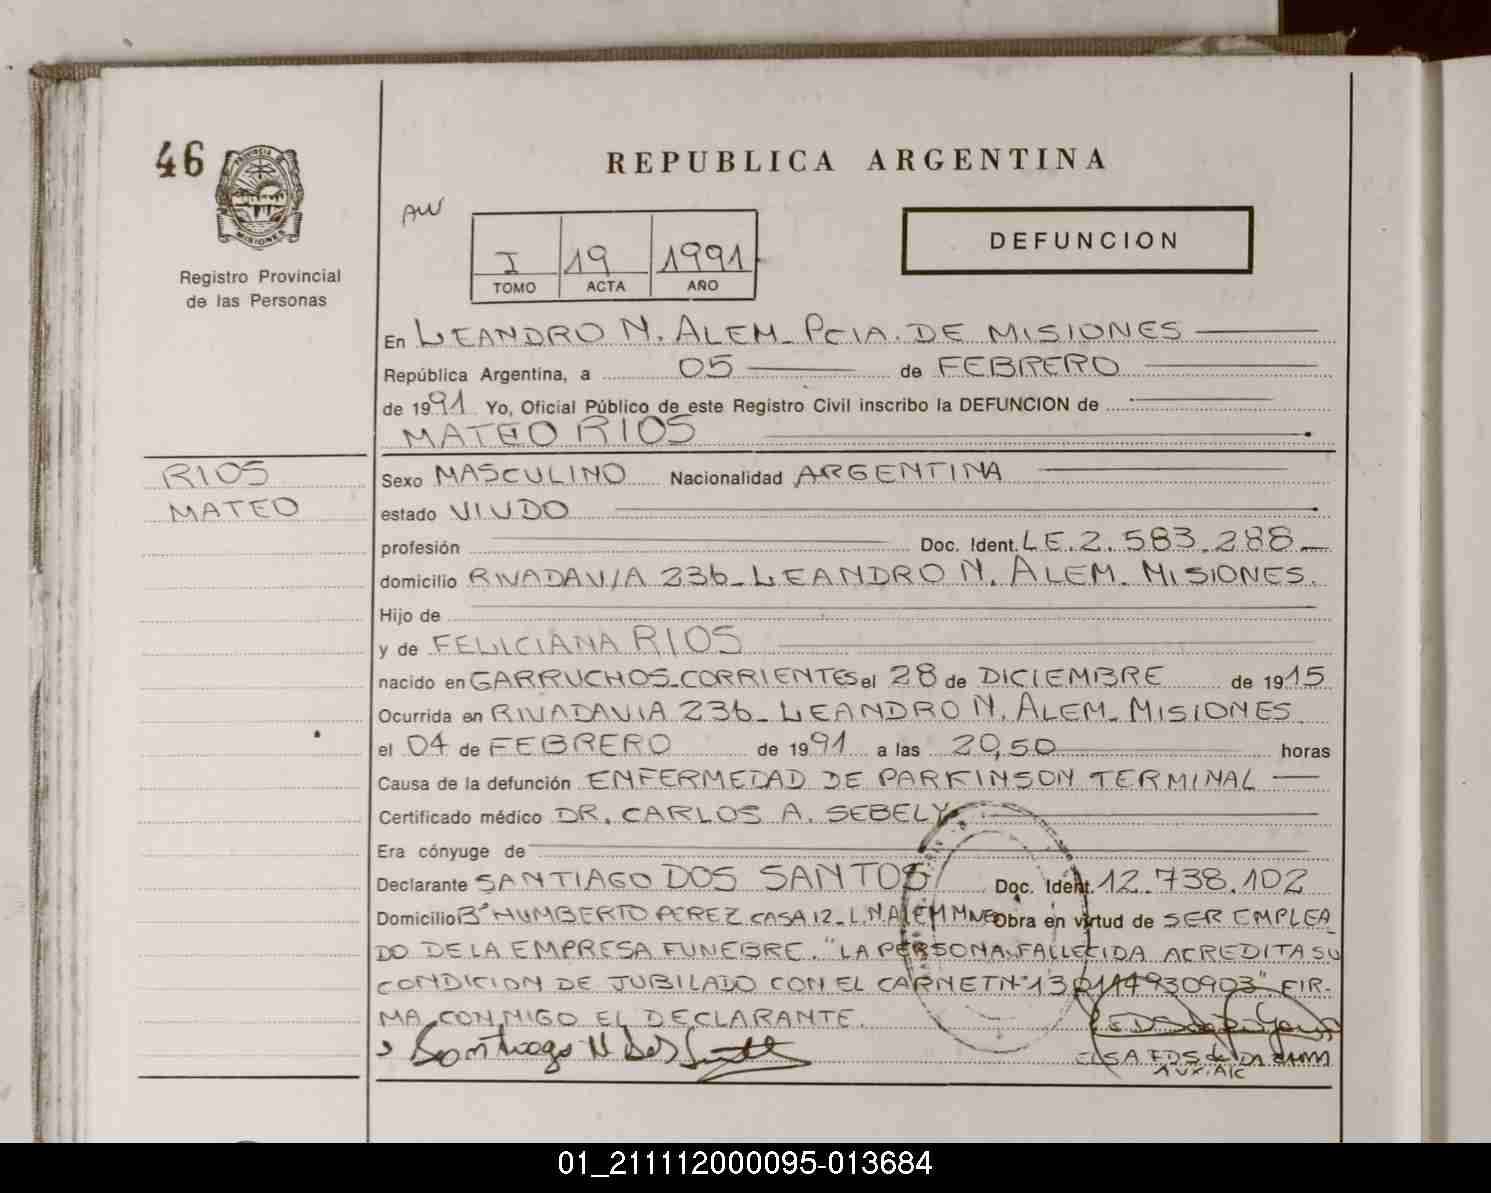 46
PROVINCIA DE
MISIONES
Registro Provincial
de las Personas
REPUBLICA ARGENTINA
AW
I 19 1991
TOMO ACTA AÑO
DEFUNCION
En LEANDRO N. ALEM_ PCIA. DE MISIONES
República Argentina, a 05 de FEBRERO
de 1991 Yo, Oficial Público de este Registro Civil inscribo la DEFUNCION de
MATEO RIOS
RIOS
MATEO
Sexo MASCULINO Nacionalidad ARGENTINA
estado VIUDO
profesión Doc. Ident. LE. 2. 583. 288
domicilio RIVADAVIA 236_ LEANDRO N. ALEM_ MISIONES.
Hijo de
y de FELICIANA RIOS
nacido en GARRUCHOS_CORRIENTES el 28 de DICIEMBRE de 1915
Ocurrida en RIVADAVIA 236_ LEANDRO N. ALEM_ MISIONES
el 04 de FEBRERO de 1991 a las 20,50 horas
Causa de la defunción ENFERMEDAD DE PARKINSON TERMINAL
Certificado médico DR. CARLOS A. SEBELY
Era cónyuge de
Declarante SANTIAGO DOS SANTOS Doc. Ident. 12.738.102
Domicilio Bº HUMBERTO PEREZ CASA 12_ L.N.ALEM MNES Obra en virtud de SER EMPLEA
DO DE LA EMPRESA FUNEBRE. "LA PERSONA FALLECIDA ACREDITA SU
CONDICION DE JUBILADO CON EL CARNET Nº FIR-
MA CONMIGO EL DECLARANTE.
Santiago N Dos
ELSA
AUX.
01_211112000095-013684